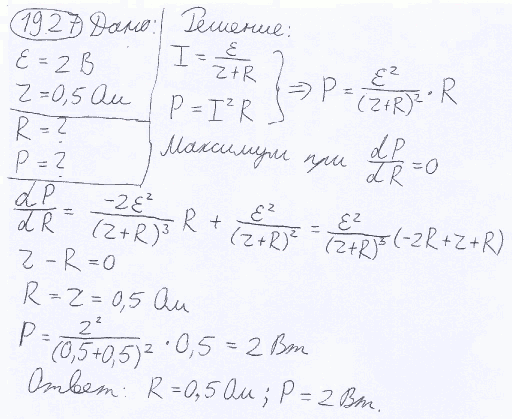 1927 Дано:
ε = 2 В
r = 0,5 Ом
R = ?
P = ?
Решение:
I = ε/(r+R)
P = I²R
⇒ P = ε²/(r+R)² · R
Максимум при dP/dR = 0
dP/dR = -2ε²/(r+R)³ R + ε²/(r+R)² = ε²/(r+R)³ (-2R+r+R)
r - R = 0
R = r = 0,5 Ом
P = 2²/(0,5+0,5)² · 0,5 = 2 Вт
Ответ: R = 0,5 Ом; P = 2 Вт.